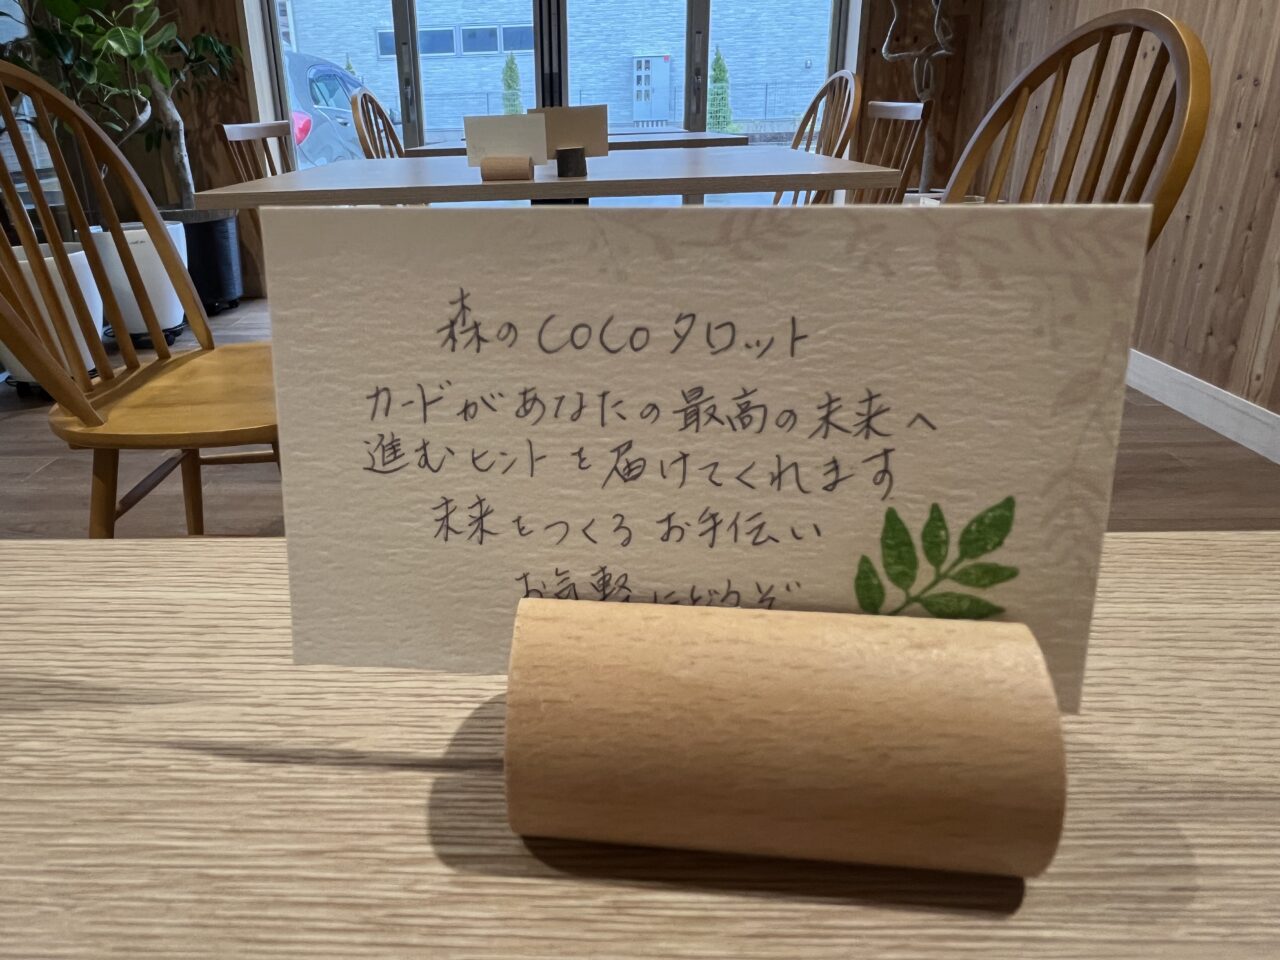 森のCOCOタロット
カードがあなたの最高の未来へ
進むヒントを届けてくれます
未来をつくるお手伝い
お気軽にどうぞ